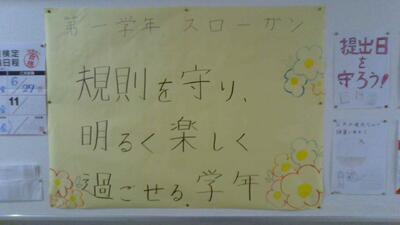 第一学年 スローガン
規則を守り、
明るく楽しく
過ごせる学年
提出日
を
守ろう!
検定
日程
6
11